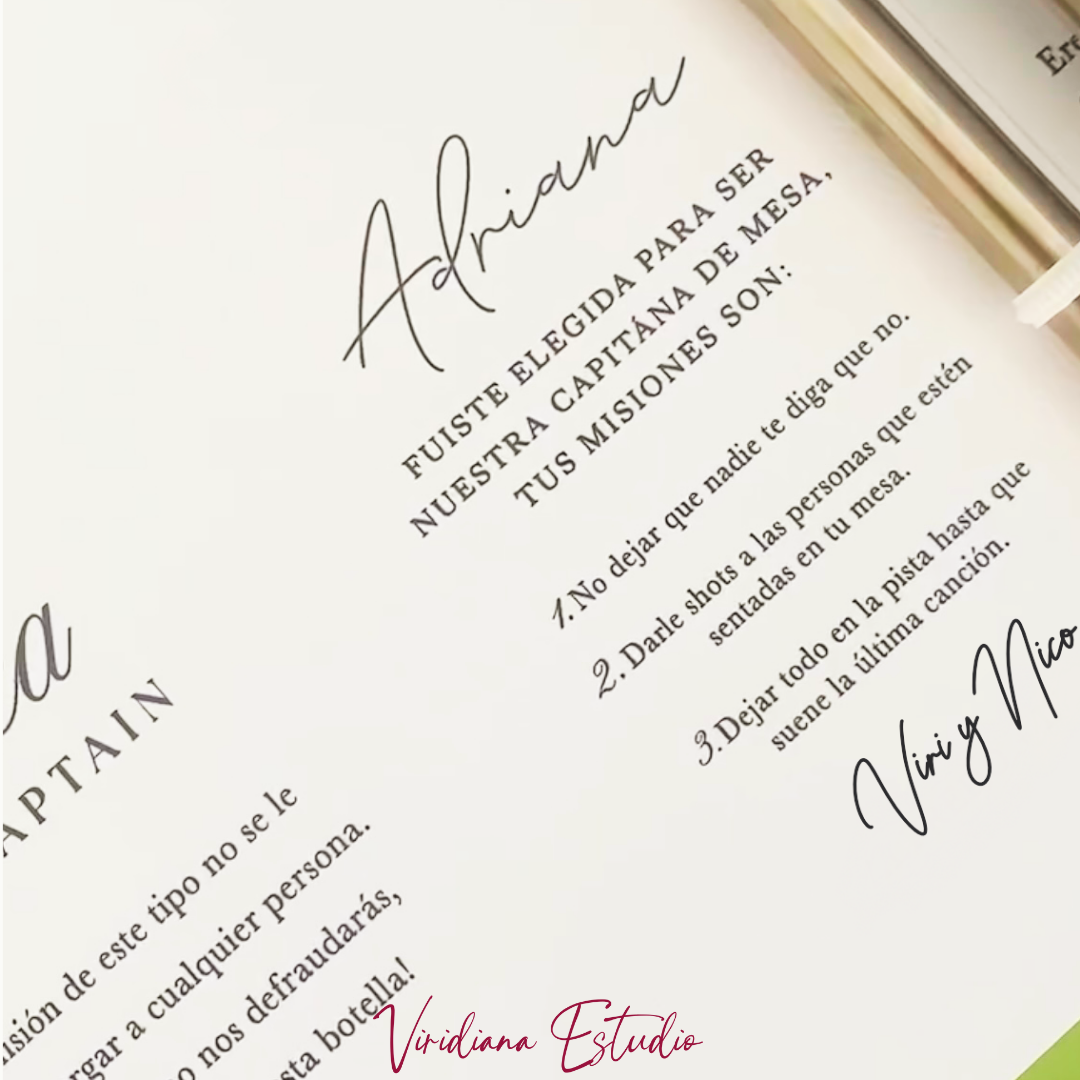 Adriana
FUISTE ELEGIDA PARA SER
NUESTRA CAPITÁNA DE MESA,
TUS MISIONES SON:
1. No dejar que nadie te diga que no.
2. Darle shots a las personas que estén
sentadas en tu mesa.
3. Dejar todo en la pista hasta que
suene la última canción.
Viri y Nico
a
APTAIN
de este tipo no se le
a cualquier persona.
nos defraudarás,
botella!
Viridiana Estudio